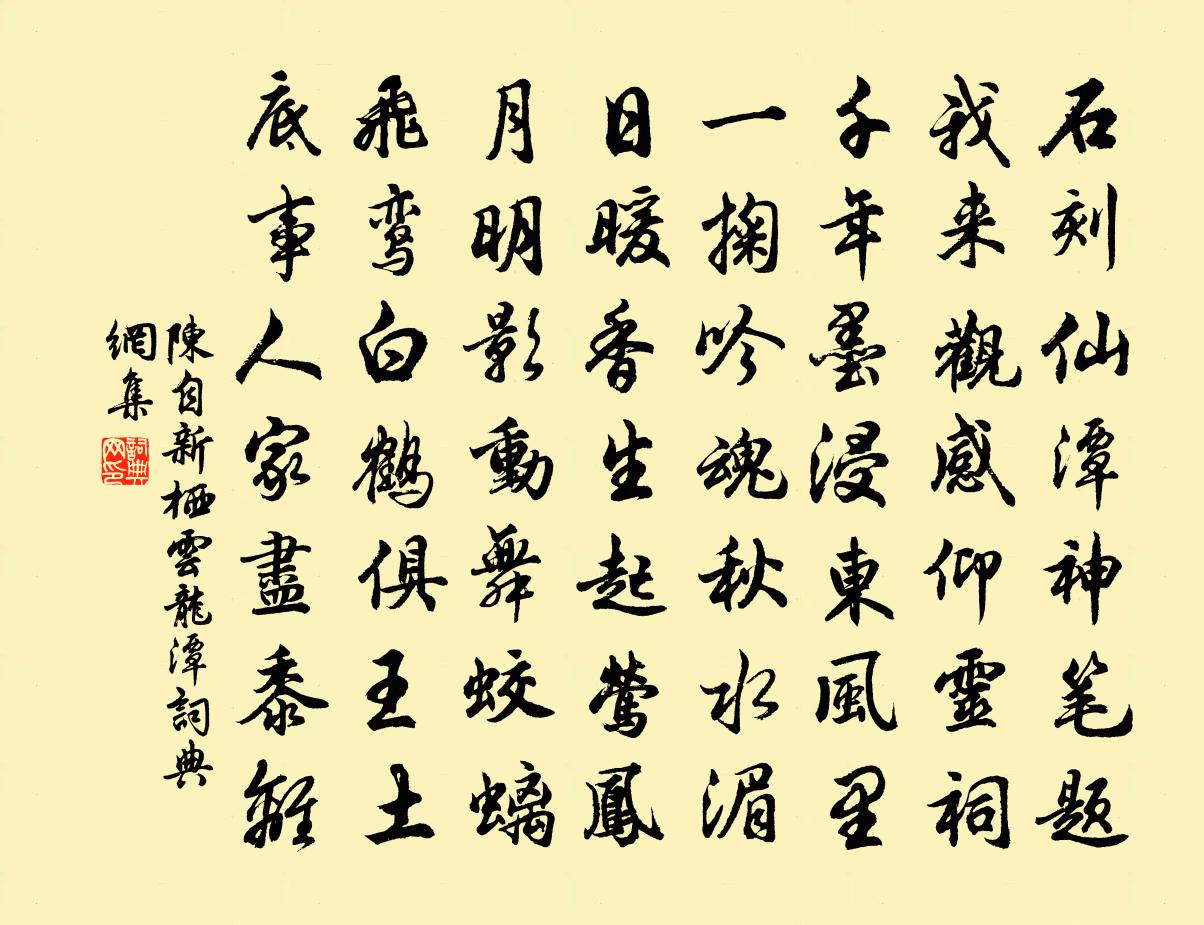 石刻仙潭神笔题
我来觀感仰靈祠
千年墨浸東風里
一掬吟魂秋水湄
日暖香生起鶯鳳
月明影動舞蛟螭
飛鸾白鶴俱王土
底事人家盡黍離
陳自新栖雲龍潭詞典
網集
詞典
网印